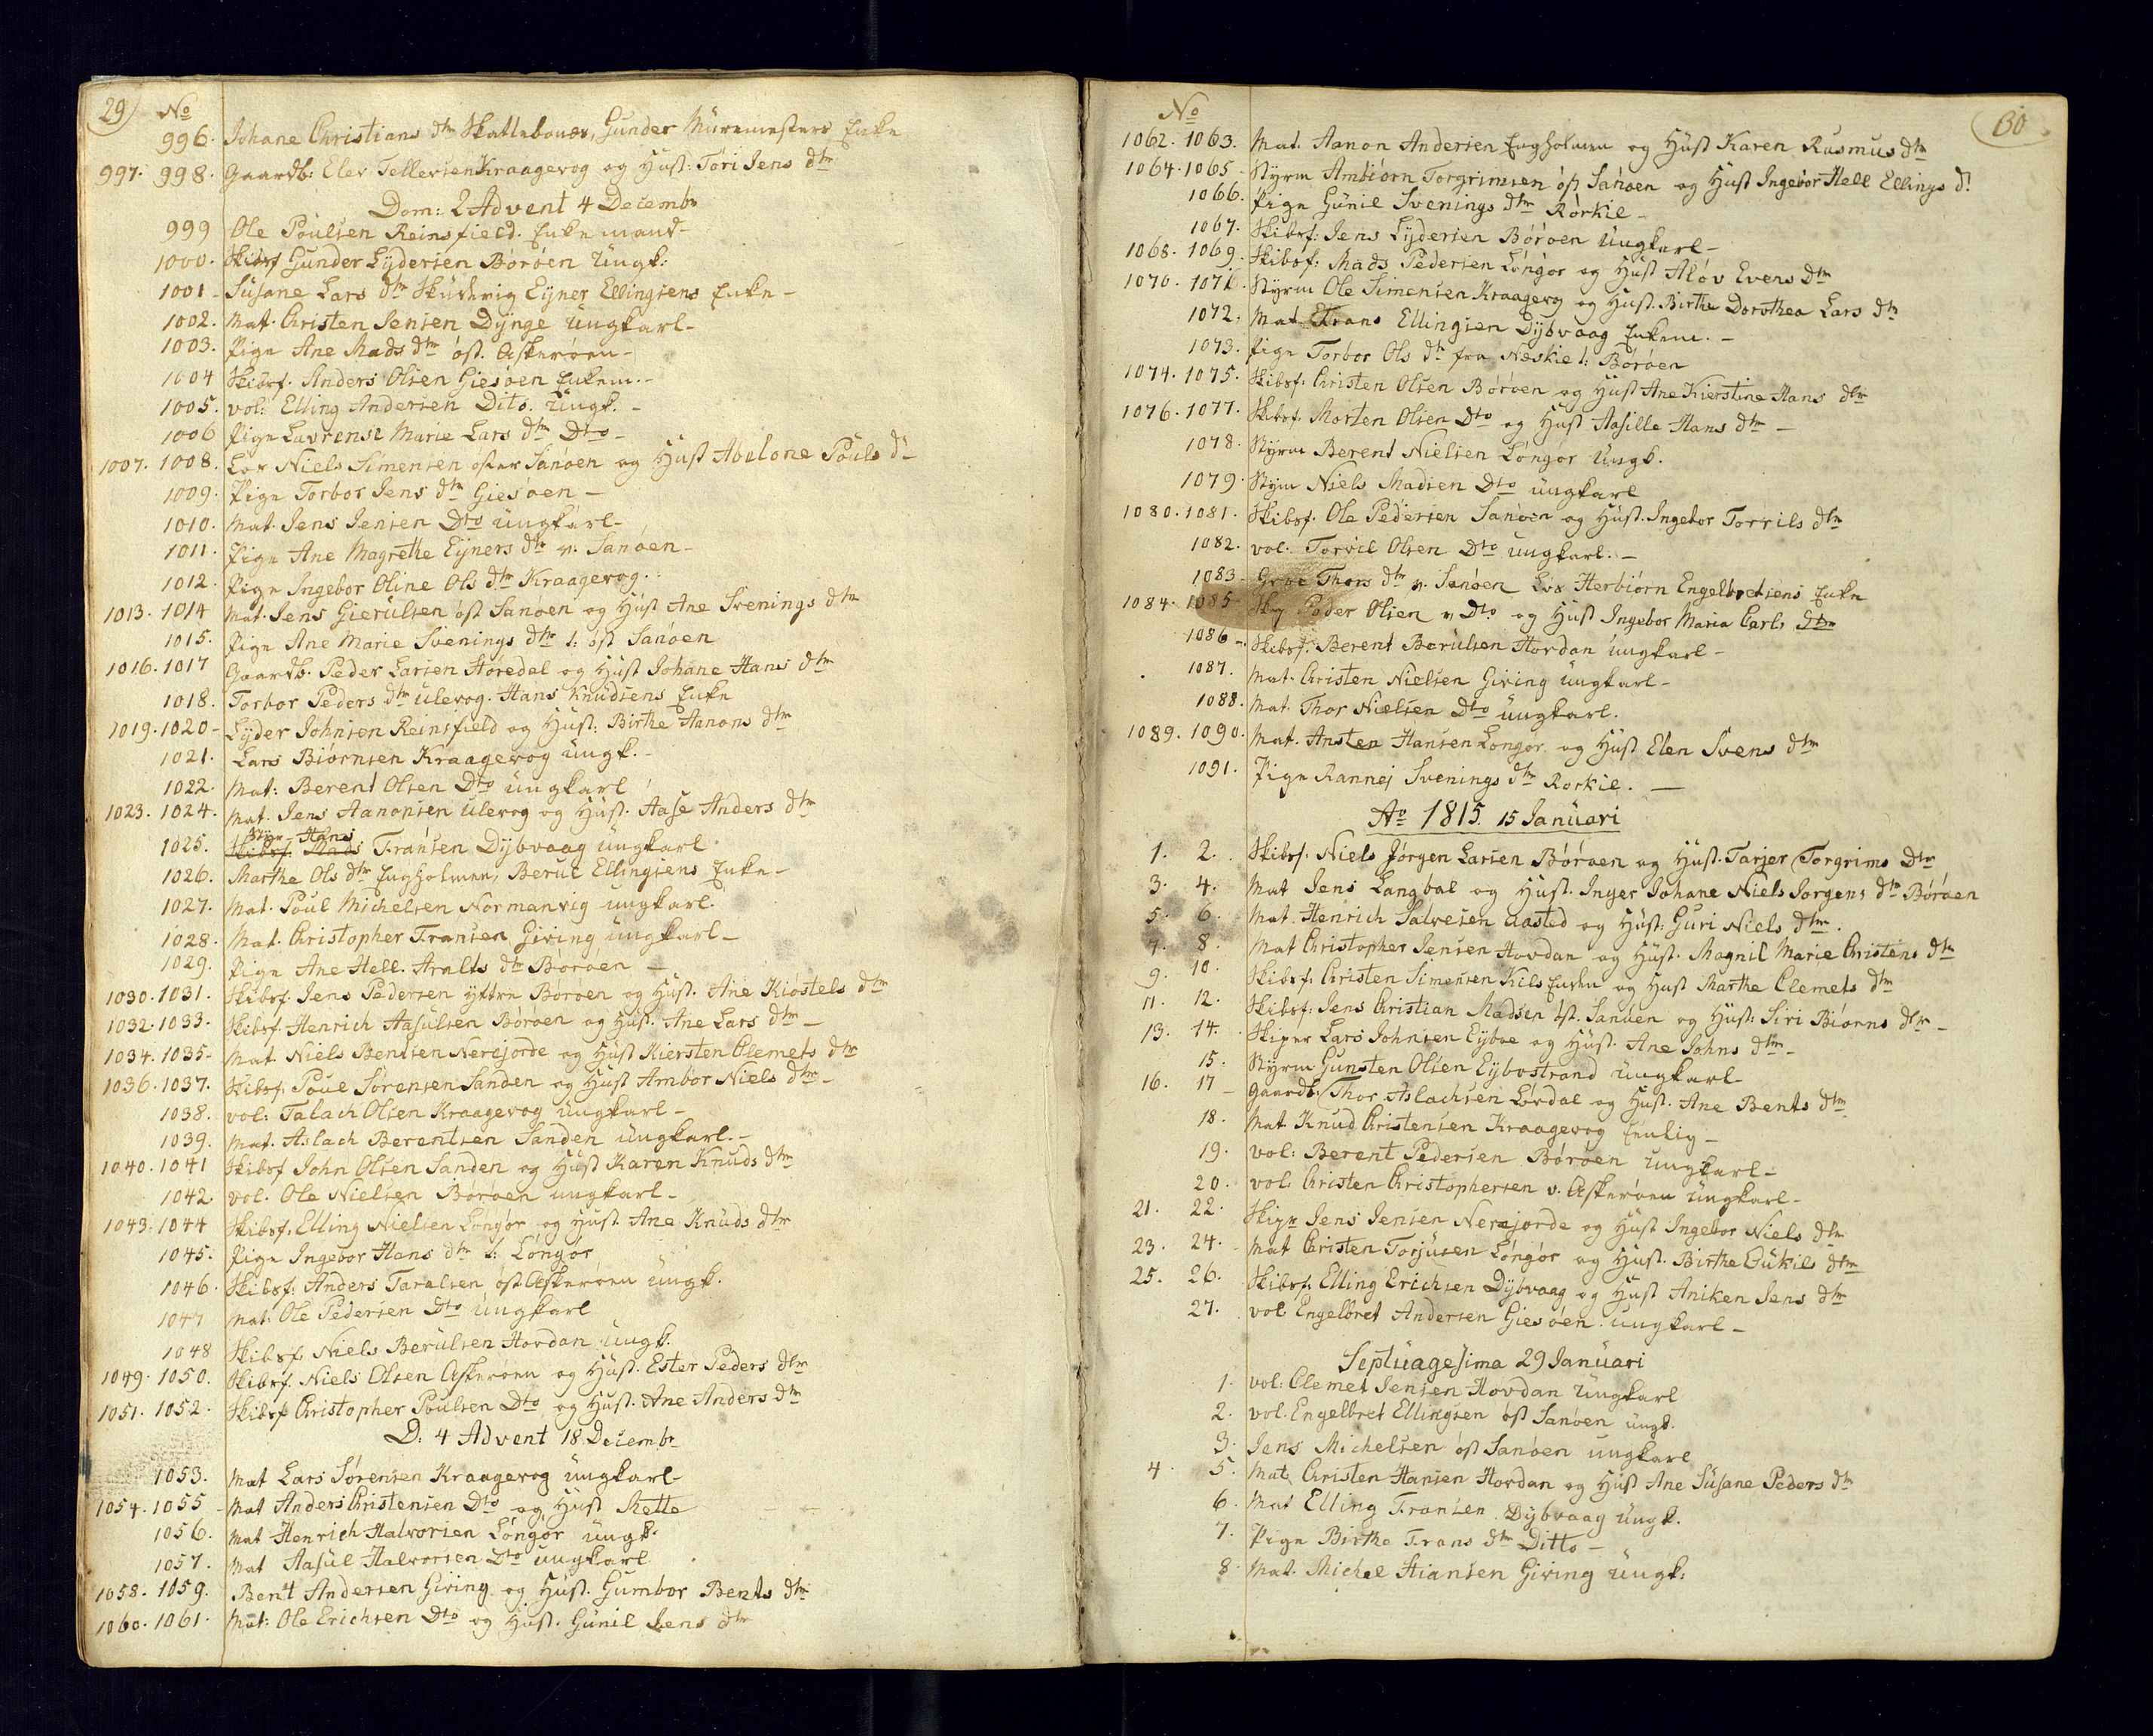 29
No
996. Johane Christians dtr Skattebonæs, Gunder Müremesters Enke
997. 998. Gaardb: Elev Tellevsen Kraagevog og Hust: Töri Jens dtr
Dom: 2 Advent 4 Decembr
999 Ole Poulsen Reinsfield. Enkemand-
1000. Skibsf Gunder Lÿdersen Böröen üngk:
1001- Süsane Lars dtr Eÿner Ellingsens Enke-
1002. Mat. Christen Jensen Dÿnge üngkarl-
1003. Pige Ane Mads dtr öst. Askeröen-
1004 Skibsf. Anders Olsen Giesöen Enkem.-
1005. vol: Elling Andersen Dito. üngk.-
1006 Pige Lavrense Marie Lars dtr Dto-
1007. 1008. Los Niels Simensen öster Sanöen og Hust Abelone Poüls d:
1009. Pige Torbor Jens dtr Giesöen-
1010. Mat. Jens Jensen Dto üngkarl-
1011. Pige Ane Magrethe Eÿners dtr v. Sanöen-
1012. Pige Ingebor Oline Ols dtr Kraagevog.
1013. 1014 Mat. Jens Gierülsen öst Sanöen og Hust Ane Svenings dtr
1015. Pige Ane Marie Svenings dtr l: öst Sanöen
1016. 1017 Gaardb. Peder Larsen Støredal og Hust Johane Hans dtr
1018. Torbor Peders dtr ülevog. Hans Knudsens Enke
1019. 1020- Lÿder Johnsen Reinsfield og Hust: Birthe Aanons dtr
1021. Lars Biörnsen Kraagevog üngk.-
1022. Mat: Berent Olsen Dto üngkarl
1023. 1024. Mat. Jens Aanonsen ülevog og Hust. Aase Anders dtr
Styr Hans
1025. Skibsf. Mads Fransen Dÿbvaag üngkarl
1026. Marthe Ols dtr Engholmen, Berul Ellingsens Enke-
1027. Mat. Poul Michelsen Normanvig ungkarl.
1028. Mat. Christopher Fransen Giving ungkarl-
1029. Pige Ane Hell. Aralts dtr Böröen-
1030. 1031. Skibsf. Jens Pedersen ÿttre Börøen og Hust. Ane Kiöstels dtr
1032. 1033. Skibsf. Henrich Aasülsen Börøen og Hust. Ane Lars dtr-
1034. 1035- Mat. Niels Bentsen Nerejorde og Hust Kiersten Clemets dtr
1036. 1037. Skibsf. Poul Sörensen Sanden og Hust Ambor Niels dtr-
1038. vol: Talach Olsen Kraagevog üngkarl-
1039. Mat. Aslach Berentsen Sanden üngkarl.-
1040. 1041 Skibsf John Olsen Sanden og Hust Karen Knuds dtr
1042. vol. Ole Nielsen Börøen ungkarl-
1043. 1044 Skibsf. Elling Nielsen Löngör og Hust Ane Knüds dtr
1045. Pige Ingebor Hans dtr l: Löngör
1046. Skibsf: Anders Taralsen öst Askeröen üngk.
1047 Mat: Ole Pedersen Dto üngkarl
1048 Skibsf. Niels Berülsen Hovdan üngk.
1049. 1050. Skibsf. Niels Olsen Askeröen og Hust. Ester Peders dtr
1051. 1052. Skibsf. Christopher Poulsen Dto og Hust. Ane Anders dtr
D: 4 Advent 18 Decembr
1053. Mat Lars Sörensen Kraagevog üngkarl-
1054. 1055- Mat Anders Christensen Dto og Hust Mette
1056. Mat Henrich Halvorsen Löngör üngk.
1057. Mat Aasül Halvorsen Dto üngkarl
1058. 1059. Bent Andersen Giving og Hust. Gumbor Bents dtr
1060. 1061. Mat: Ole Erichsen Dto og Hust. Günil Jens dtr
30
No
1062. 1063. Mat. Aanon Andersen Engholmen og Hust Karen Rasmus dtr
1064. 1065- Styrm Ambiörn Torgrimsen öst Sanöen og Hust Ingebor Hell Ellings d:
1066. Pige Günil Svenings dtr Rörkil-
1067. Skibsf: Jens Lÿdersen Börøen üngkarl-
1068. 1069. Skibsf: Mads Pedersen Löngör og Hust Alöv Evens dtr
1070. 1071. Styrm Ole Simensen Kraagevog og Hust. Birthe Dorothea Lars dtr
1072. Mat Frans Ellingsen Dÿbvaag Enkem.-
1073. Pige Torbor Ols dtr fra Næskil l: Börøen
1074. 1075. Skibsf: Christen Olsen Börøen og Hust Ane Kierstine Hans dtr
1076. 1077. Skibsf. Morten Olsen Dto og Hust Aasille Hans dtr-
1078. Styrm Berent Nielsen Löngör üngk.
1079. Stym Niels Madsen Dto üngkarl
1080. 1081. Skibsf. Ole Pedersen Sanöen og Hust. Ingebor Torrils dtr
1082. vol. Torvil Olsen Dto üngkarl.-
1083- Thors dtr v. Sanöen Los Herbiörn Engelbretsens Enke
1084. 1085 Peder Olsen v. Dto og Hust Ingebor Maria Carls dtr
1086- Skibsf. Berent Berülsen Hovdan üngkarl-
1087. Mat. Christen Nielsen Giving üngkarl-
1088. Mat. Thor Nielsen Dto üngkarl.
1089. 1090. Mat. Ansten Hansen Longor og Hust Elen Svens dtr
1091. Pige Rannej Svenings dtr Rorkil.-
Ao 1815. 15 Januari
1. 2. Skibsf. Niels Jörgen Larsen Börøen og Hust. Tarjer Torgrims Dtr
3. 4. Mat Jens Langbal og Hust. Inger Johane Niels Jorgens dtr Börøen
5. 6. Mat. Henrich Salvesen Aasted og Hust: Guri Niels dtr.
7. 8. Mat Christopher Jensen Hovdan og Hust. Magnil Marie Christens dtr
9. 10. Skibsf. Christen Simensen Kils Enden og Hust Marthe Clemets dtr
11. 12. Skibsf: Jens Christian Madsen öst. Sanöen og Hust: Siri Biörns dtr-
13. 14. Skiper Lars Johnsen Eÿboe og Hust. Ane Johns dtr-
15. Styrm Gunsten Olsen Eÿbostrand üngkarl
16. 17- Gaardb: Thor Aslachsen Lövdal og Hust. Ane Bents dtr
18. Mat Knud Christensen Kraagevog Eenlig-
19. vol: Berent Pedersen Börøen üngkarl-
20. vol: Christen Christophersen v. Askeröen üngkarl-
21. 22. Skipr Jens Jensen Nerejorde og Hust Ingebor Niels dtr
23. 24.- Mat Christen Torjüsen Löngör og Hust. Birthe Bükils dtr
25. 26. Skibsf: Elling Erichsen Dÿbvaag og Hust Aniken Jens dtr
27. vol Engelbret Andersen Giesöen ungkarl-
Septüagesima 29 Januari
1. vol: Clemet Jensen Hovdan üngkarl
2. vol. Engelbret Ellingsen öst Sanöen üngk.
3. Jens Michelsen öst Sanöen ungkarl
4. 5. Mat. Christen Hansen Hovdan og Hust Ane Süsane Peders dtr
6. Mat Elling Fransen Dÿbvaag üngk.
7. Pige Birthe Frans dtr Ditto-
8. Mat. Michel Stiansen Giving üngk: